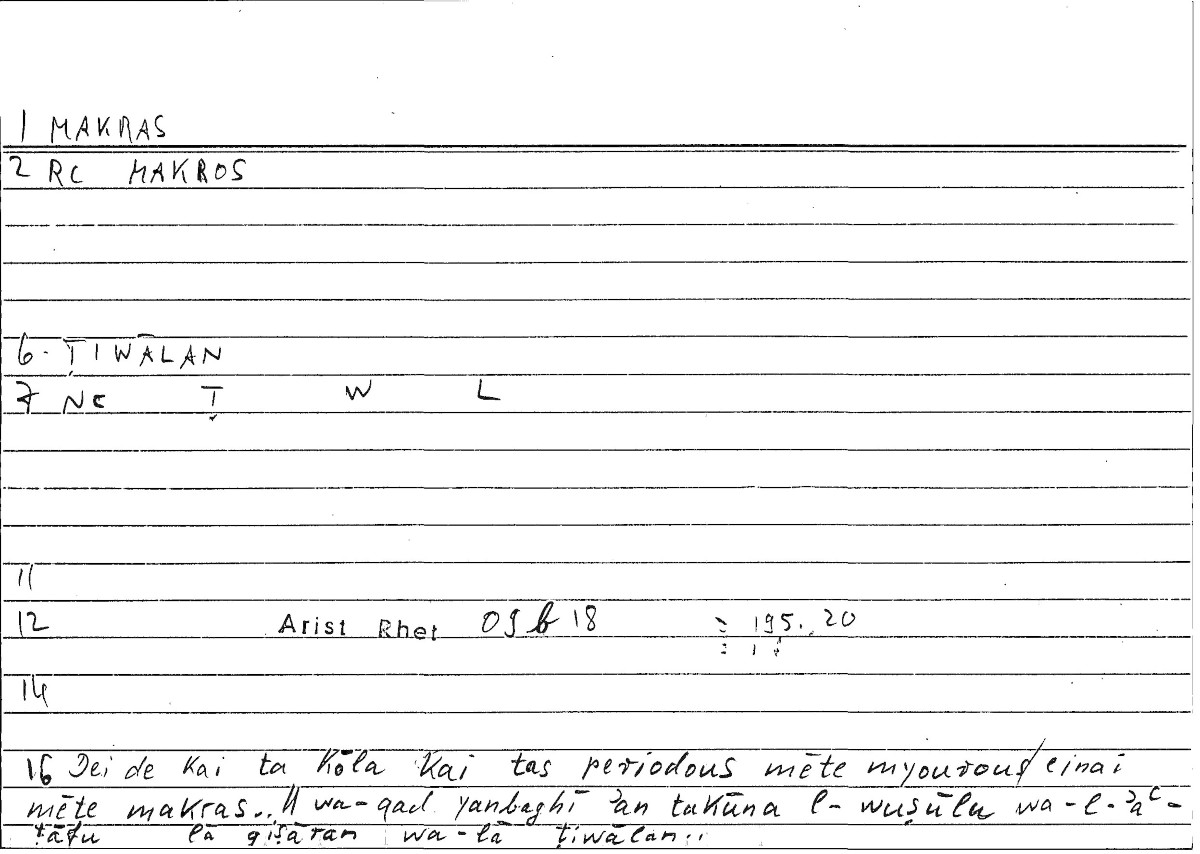 1 MAKRAS
2 RC MAKROS
6. ṬIWĀLAN
7 NC Ṭ W L
11
12 Arist Rhet 09 b 18 = 195. 20
14
16 Dei de kai ta kōla kai tas periodous mēte myourous einai
mēte makras.. // wa-qad yanbaghī ʾan takūna l-wuṣūlu wa-l-ʾaʿ-
ṭāfu lā qiṣāran wa-lā ṭiwālan..